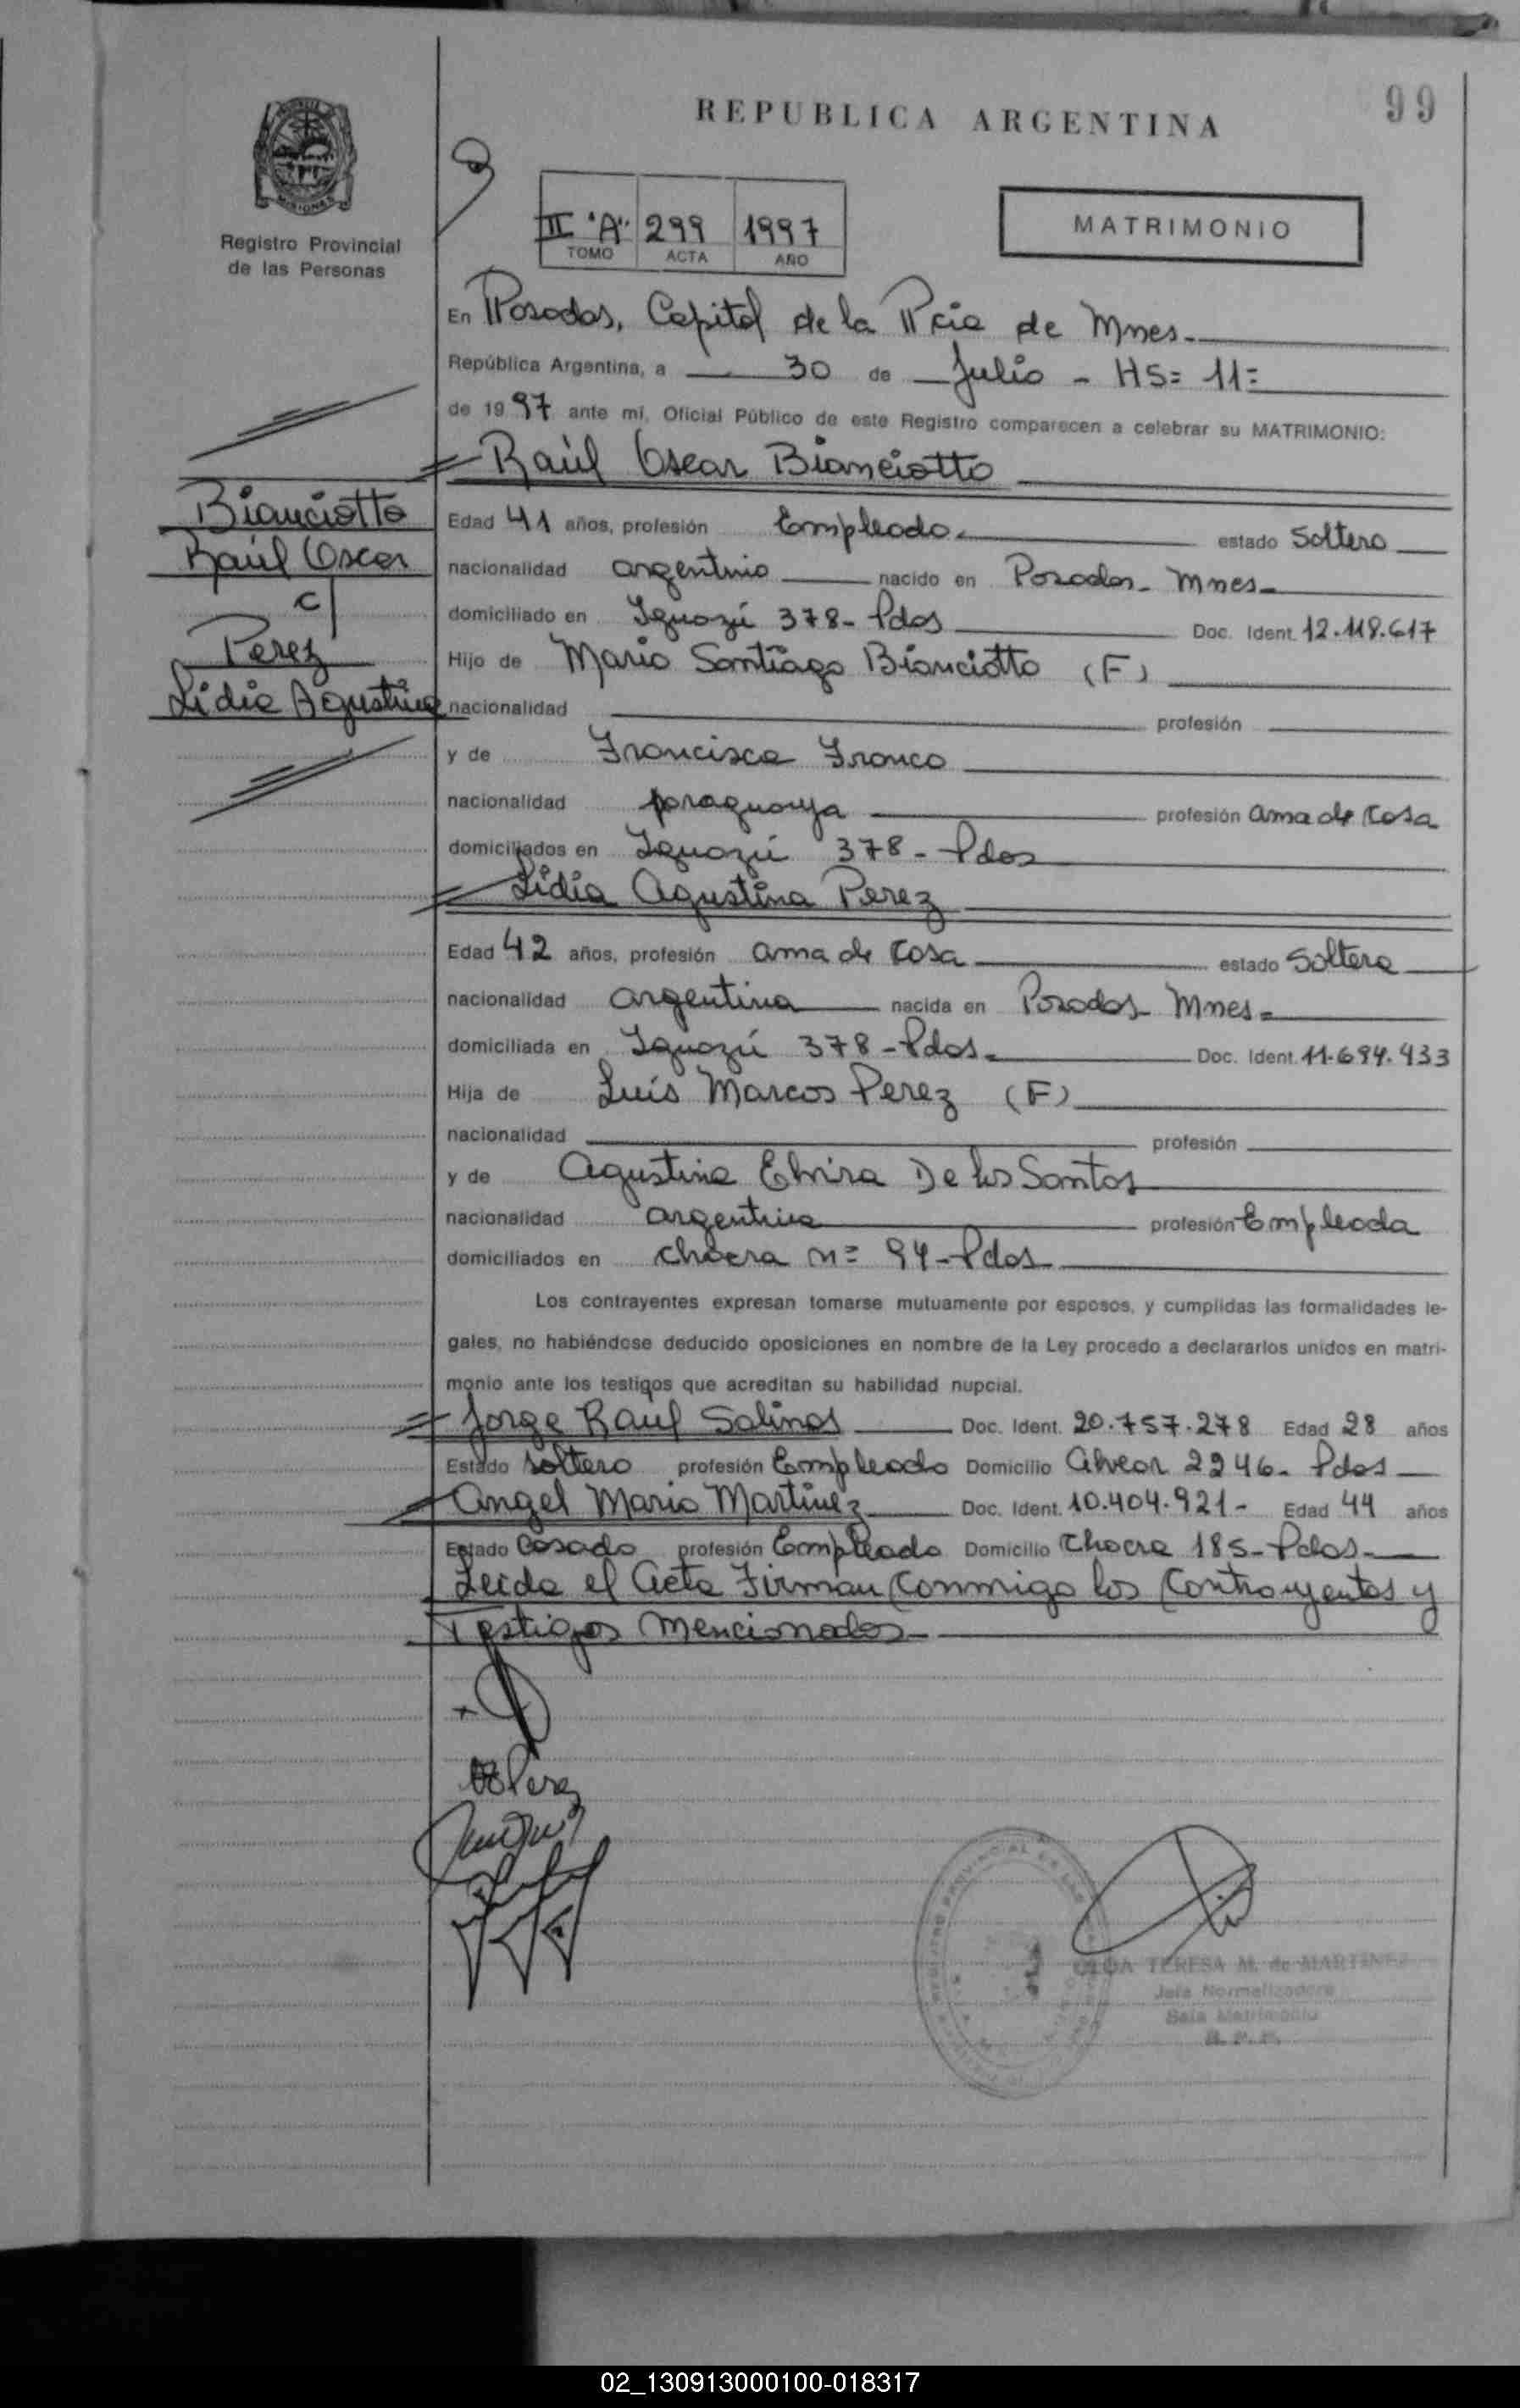 99
REPUBLICA ARGENTINA
MISIONES
Registro Provincial
de las Personas
II "A" 299 1997
TOMO ACTA AÑO
MATRIMONIO
En Posadas, Capital de la Pcia de Mnes.
República Argentina, a 30 de Julio - HS= 11=
de 1997 ante mí, Oficial Público de este Registro comparecen a celebrar su MATRIMONIO:
Raúl Oscar Bianciotto
Bianciotto
Raúl Oscar
c/
Perez
Lidia Agustina
Edad 41 años, profesión Empleado. estado Soltero
nacionalidad argentino nacido en Posadas - Mnes -
domiciliado en Iguazú 378 - Pdas Doc. Ident. 12.118.617
Hijo de Mario Santiago Bianciotto (F)
nacionalidad profesión
y de Francisca Franco
nacionalidad paraguaya profesión ama de casa
domiciliados en Iguazú 378 - Pdas
Lidia Agustina Perez
Edad 42 años, profesión ama de casa estado Soltera
nacionalidad argentina nacida en Posadas - Mnes -
domiciliada en Iguazú 378 - Pdas. Doc. Ident. 11.694.433
Hija de Luis Marcos Perez (F)
nacionalidad profesión
y de Agustina Elvira De los Santos
nacionalidad argentina profesión Empleada
domiciliados en chacra n= 94 - Pdas
Los contrayentes expresan tomarse mutuamente por esposos, y cumplidas las formalidades le-
gales, no habiéndose deducido oposiciones en nombre de la Ley procedo a declararlos unidos en matri-
monio ante los testigos que acreditan su habilidad nupcial.
Jorge Raul Salinas Doc. Ident. 20.757.278 Edad 28 años
Estado soltero profesión Empleado Domicilio Alvear 2246 - Pdas
Angel Mario Martinez Doc. Ident. 10.404.921 - Edad 44 años
Estado Casado profesión Empleado Domicilio Chacra 185 - Pdas -
Leida el Acta Firman conmigo los Contrayentes y
Testigos mencionados -
Perez
OLGA TERESA M. de MARTINEZ
Jefa Normalizadora
Sala Matrimonio
02_130913000100-018317